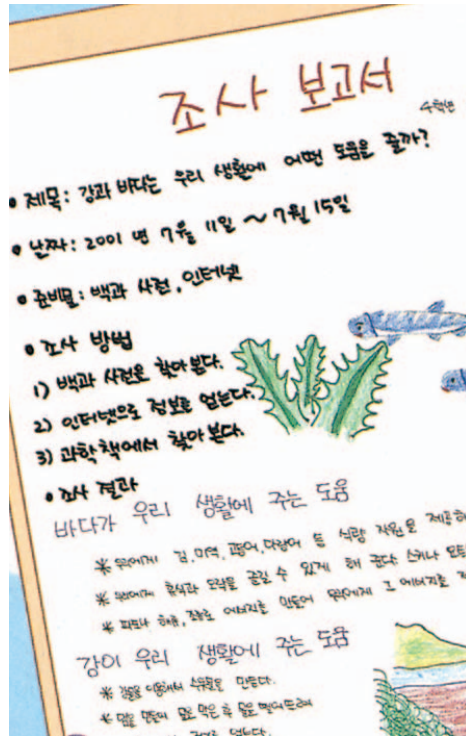 조사 보고서
4학년
• 제목: 강과 바다는 우리 생활에 어떤 도움을 줄까?
• 날짜: 2001 년 7월 11일 ~ 7월 15일
• 준비물: 백과 사전, 인터넷
• 조사 방법
1) 백과 사전을 찾아본다.
2) 인터넷으로 정보를 얻는다.
3) 과학책에서 찾아 본다.
• 조사 결과
바다가 우리 생활에 주는 도움
※ 우리에게 김, 미역, 고등어, 다랑어 등 식량 자원을 제공하
※ 우리에게 휴식과 오락을 즐길 수 있게 해 준다. 스키나 요트
※ 파도나 해류, 조류로 에너지를 만들어 우리에게 그 에너지를
강이 우리 생활에 주는 도움
※ 강물을 이용해서 수돗물을 만든다.
※ 댐을 만들어 물을 막은 후 물을 떨어뜨려
얻는다.